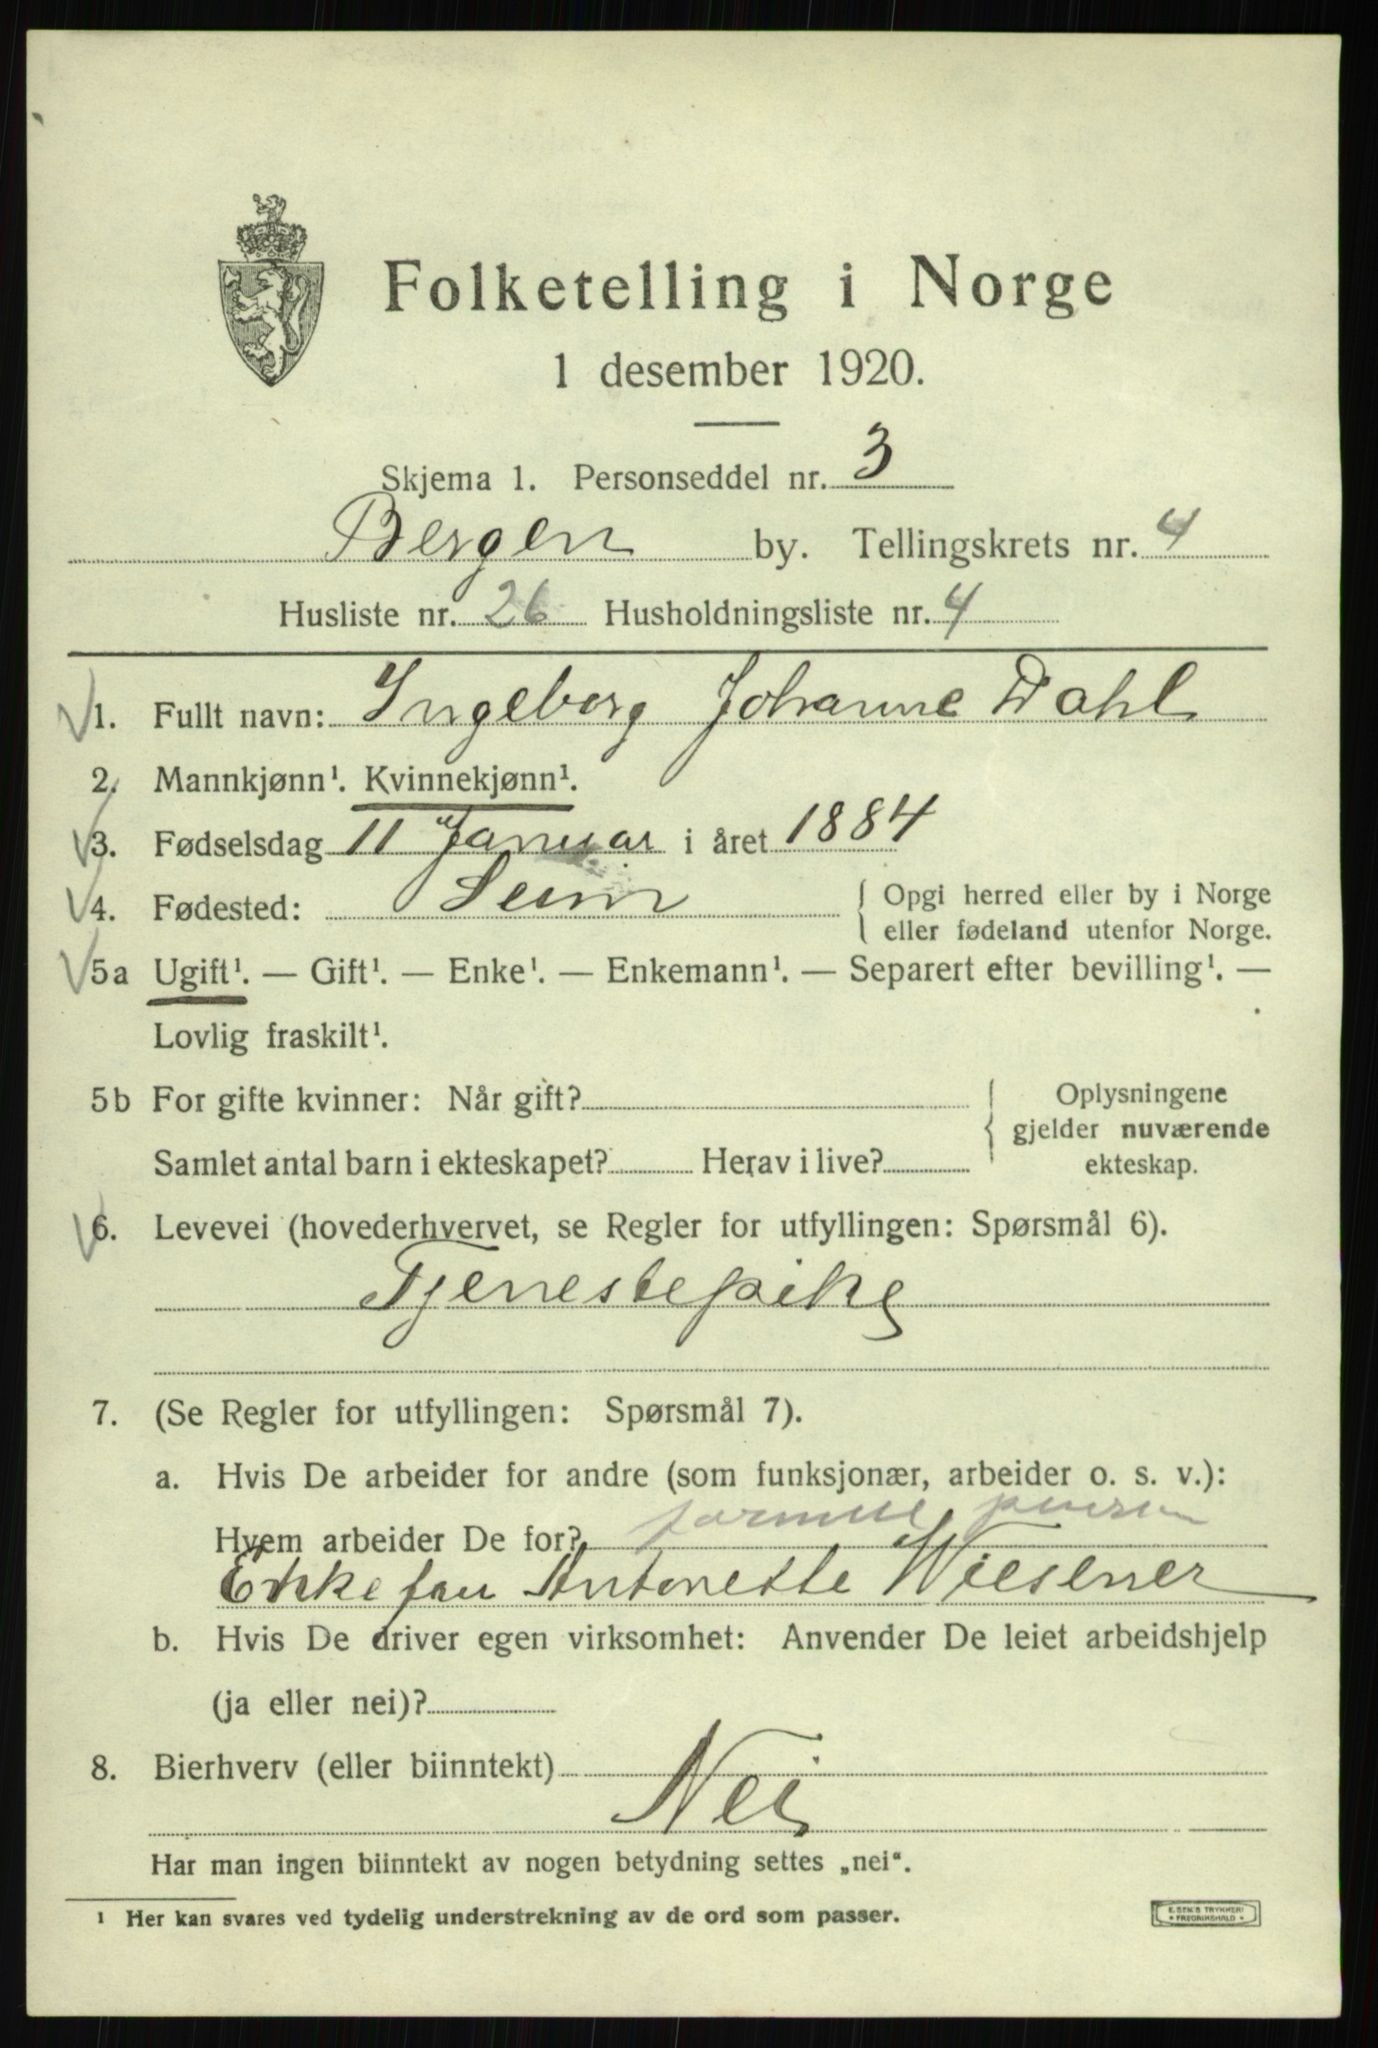 Folketelling i Norge
1 desember 1920.
Skjema 1. Personseddel nr. 3
Bergen by. Tellingskrets nr. 4
Husliste nr. 26 Husholdningsliste nr. 4
1. Fullt navn: Ingeborg Johanne Dahl
2. Mannkjønn¹. Kvinnekjønn¹.
3. Fødselsdag 11 Januar i året 1884
4. Fødested: Seim { Opgi herred eller by i Norge
eller fødeland utenfor Norge.
5a Ugift¹. — Gift¹. — Enke¹. — Enkemann¹. — Separert efter bevilling¹. —
Lovlig fraskilt¹.
5b For gifte kvinner: Når gift? { Oplysningene
gjelder nuværende
Samlet antal barn i ekteskapet? Herav i live? ekteskap.
6. Levevei (hovederhvervet, se Regler for utfyllingen: Spørsmål 6).
Tjenestepike
7. (Se Regler for utfyllingen: Spørsmål 7).
a. Hvis De arbeider for andre (som funksjonær, arbeider o. s. v.):
Hvem arbeider De for?
Enkefru Antonette Wiesener
b. Hvis De driver egen virksomhet: Anvender De leiet arbeidshjelp
(ja eller nei)?
8. Bierhverv (eller biinntekt)
Nei
Har man ingen biinntekt av nogen betydning settes „nei“.
¹ Her kan svares ved tydelig understrekning av de ord som passer.
E. SEM'S TRYKKERI
* FREDRIKSHALD *